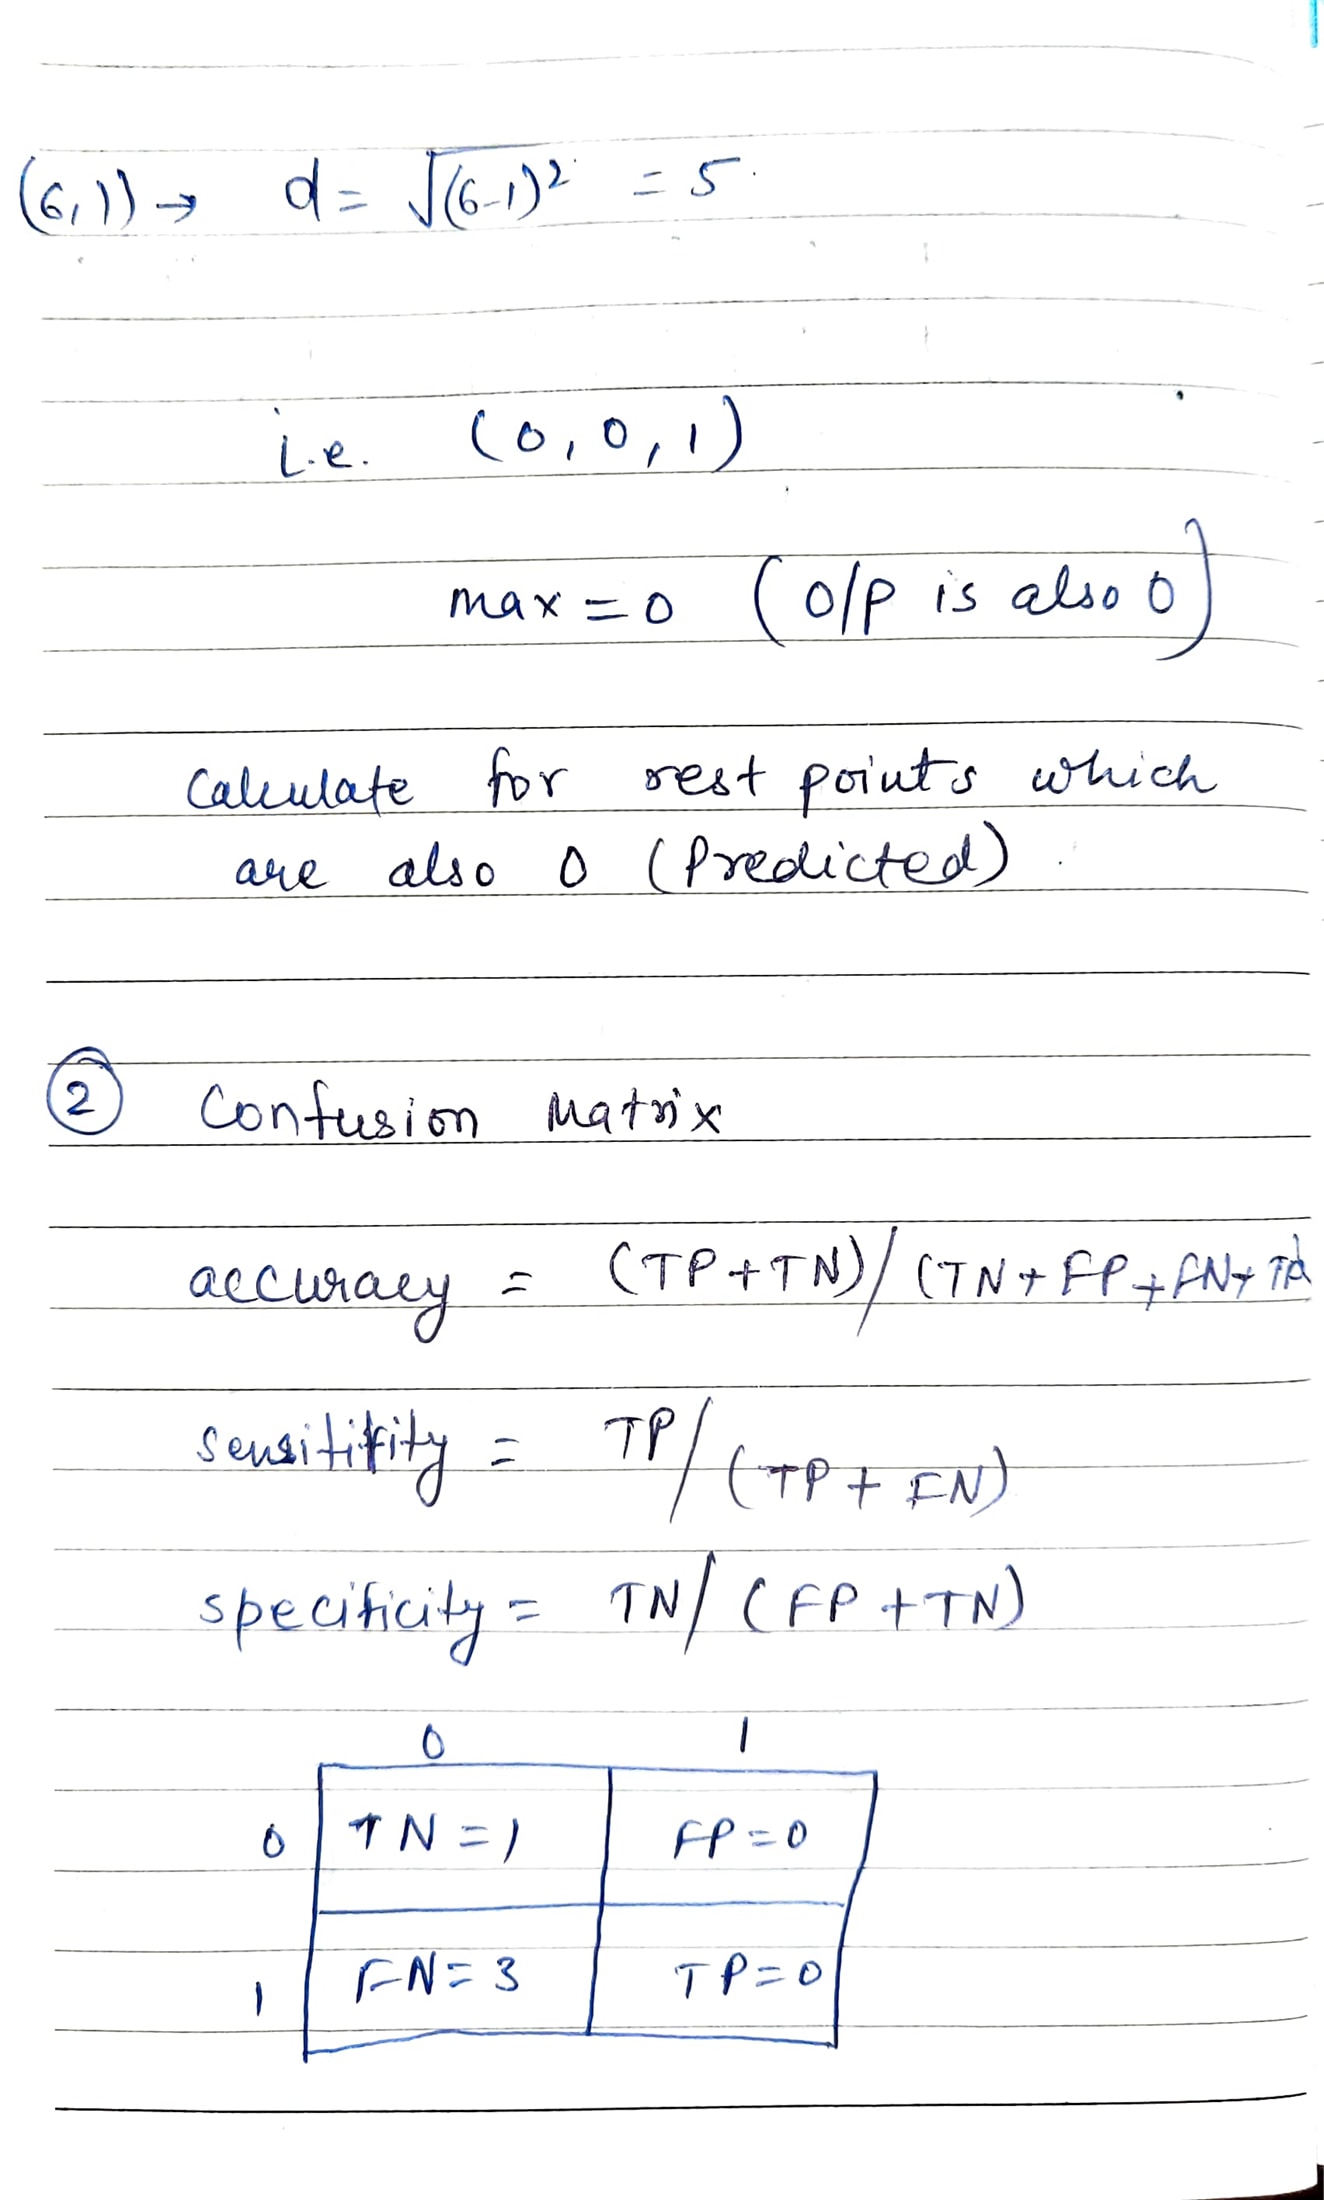 (6,1) → d = √(6-1)² = 5.
i.e. (0,0,1)
max = 0 (O/P is also 0)
Calculate for rest points which
are also 0 (Predicted).
② Confusion Matrix
accuracy = (TP+TN)/(TN+FP+FN+TP)
sensitivity = TP/(TP+FN)
specificity = TN/(FP+TN)
0 1
0 TN=1 FP=0
1 FN=3 TP=0